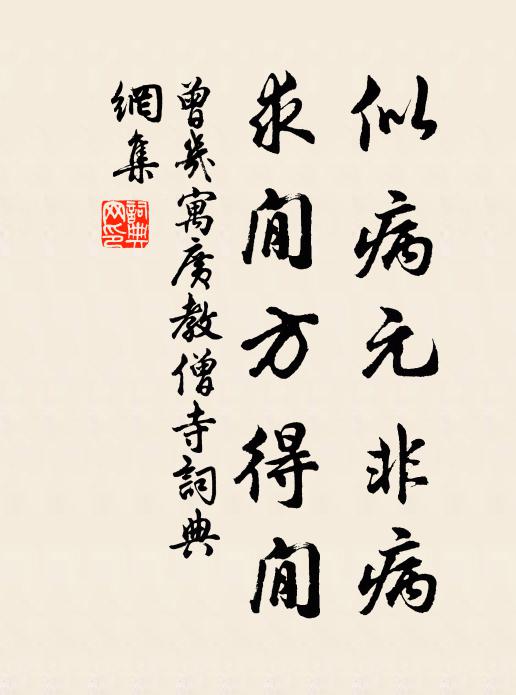 似病元非病
求閒方得閒
曾幾寓廣教僧寺詞典
網集
詞典網印